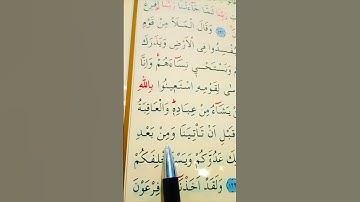 رَبَّنَا لَمَّا جَاءَتْنَا رَبَّنَا اَفْرِغْ
وَقَالَ الْمَلَأُ مِنْ قَوْمِ
لِيُفْسِدُوا فِى الْاَرْضِ وَيَذَرَكَ
وَنَسْتَحْيٖى نِسَاءَهُمْ وَاِنَّا
لِقَوْمِهِ اسْتَعٖينُوا بِاللّٰهِ
يَشَاءُ مِنْ عِبَادِهٖ وَالْعَاقِبَةُ
قَبْلِ اَنْ تَأْتِيَنَا وَمِنْ بَعْدِ
عَدُوَّكُمْ وَيَسْتَخْلِفَكُمْ
وَلَقَدْ اَخَذْنَا فِرْعَوْنَ